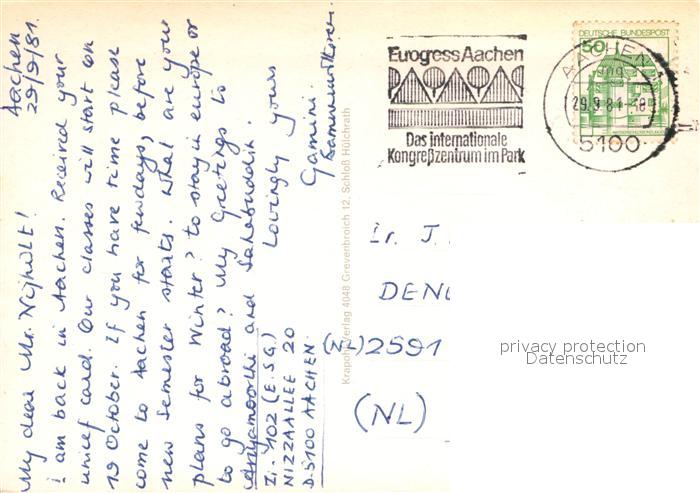 Aachen
29/9/81.
My dear Mr. Nijholt!
I am back in Aachen. Received your
unicef card. Our classes will start on
19 October. If you have time please
come to Aachen for fewdays, before
new semester starts. What are your
plans for Winter? to stay in europe or
to go abroad? My Greetings to
and Sahabuddin.
Lovingly yours
Gamini.
Zi. 102 (E.S.G.)
NIZZAALLEE 20
D.5100 AACHEN.
Krapohl-Verlag 4048 Grevenbroich 12, Schloß Hülchrath
Eurogress Aachen
Das internationale
Kongreßzentrum im Park
AACHEN 1
29.9.81-18
5100
DEUTSCHE BUNDESPOST
50
Ir. J.
DEN
(NL) 2591
(NL)
privacy protection
Datenschutz